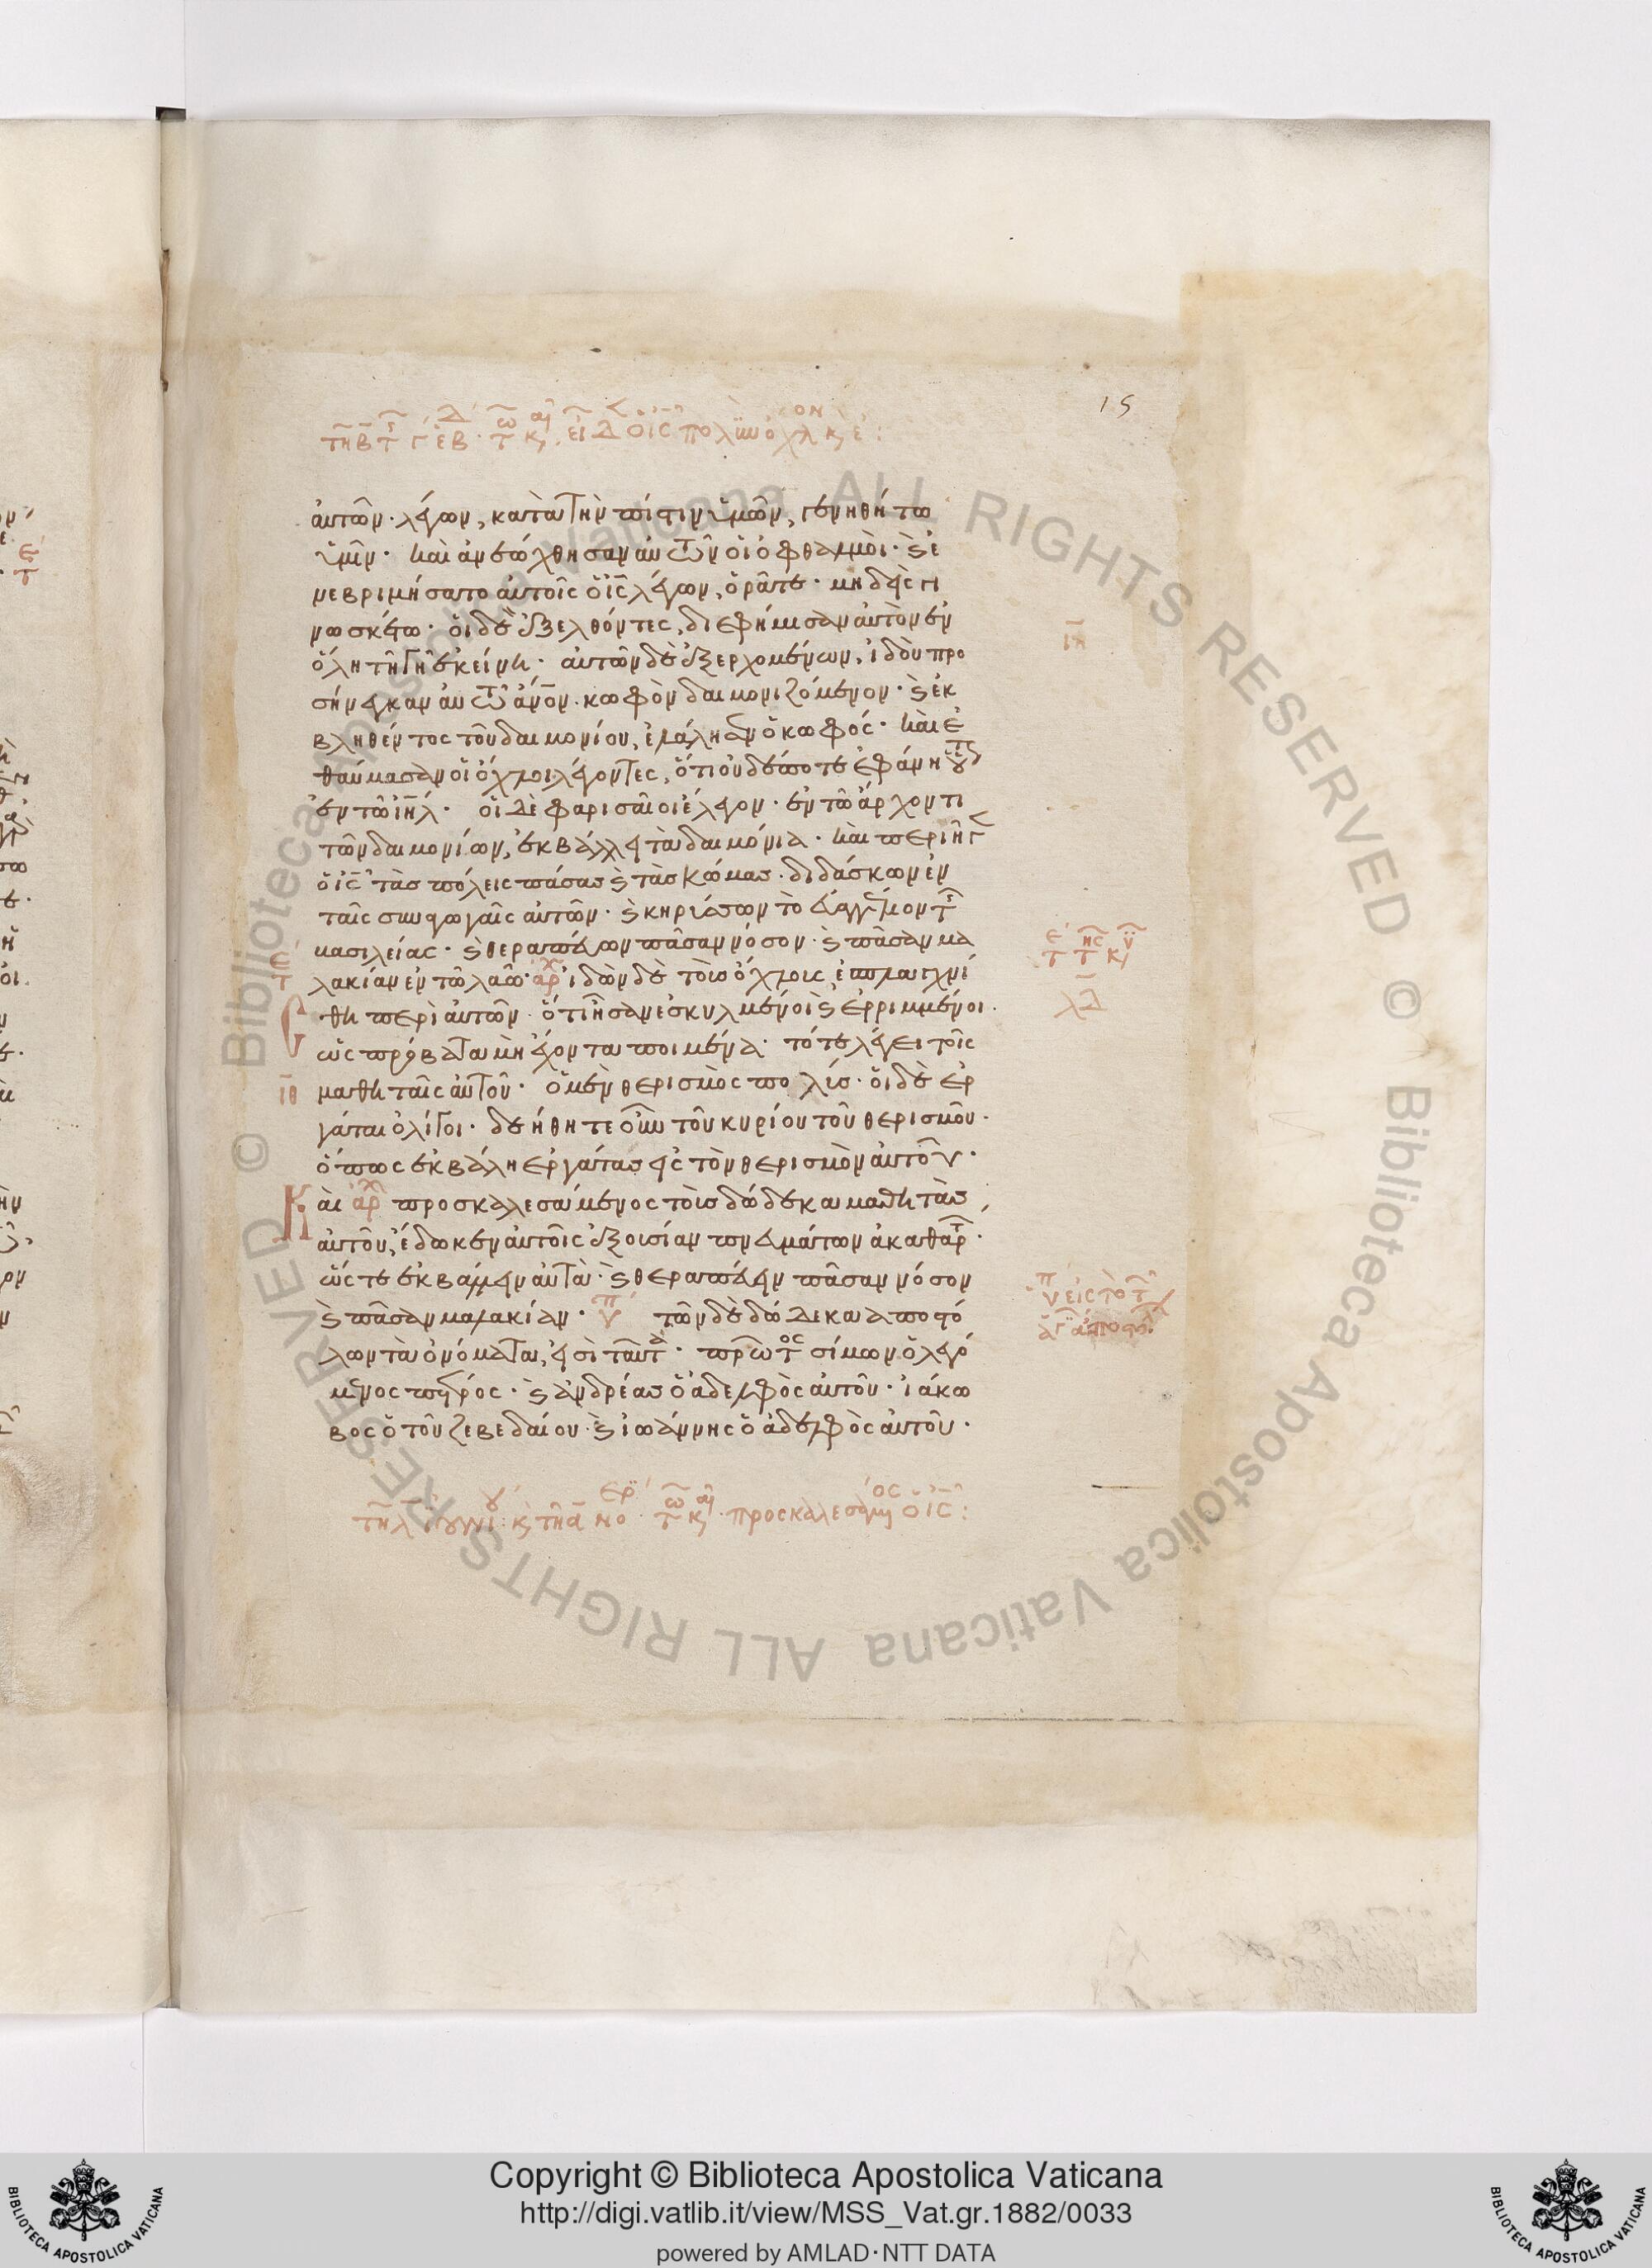 15
αὐτῶν· λέγων, κατὰ τὴν πίστιν ὑμῶν, γενηθήτω
ὑμῖν· καὶ ἀνεώχθησαν αὐτῶν οἱ ὀφθαλμοὶ· καὶ ἐ
νεβριμήσατο αὐτοῖς ὁ ι̅ς̅ λέγων, ὁρᾶτε· μηδεὶς γι
νωσκέτω· οἱ δὲ ἐξελθόντες, διεφήμισαν αὐτὸν ἐν
ὅλη τῆ γῆ ἐκείνη· αὐτῶν δὲ ἐξερχομένων, ἰδοὺ προ
σήνεγκαν αὐτῶ ἄν̅ον· κωφὸν δαιμονιζόμενον· καὶ ἐκ
βληθέντος τοῦ δαιμονίου, ἐλάλησεν ὁ κωφός· καὶ ἐ
θαύμασαν οἱ ὄχλοι λέγοντες, ὅτι οὐδέποτε ἐφάνη οὕτως
ἐν τῶ ι̅η̅λ̅· οἱ δὲ φαρισαῖοι ἔλεγον· ἐν τῶ ἄρχοντι
τῶν δαιμονίων, ἐκβάλλει τὰ δαιμόνια· καὶ περιῆγεν
ὁ ι̅ς̅ τὰς πόλεις πάσας καὶ τὰς κώμας· διδάσκων ἐν
ταῖς συναγωγαῖς αὐτῶν· καὶ κηρύσσων τὸ εὐαγγέλιον τῆς
βασιλείας· καὶ θεραπεύων πᾶσαν νόσον· καὶ πᾶσαν μα
λακίαν ἐν τῶ λαῶ· ἀρχ ἰδὼν δὲ τοὺς ὄχλους, ἐσπλαγχνί
σθη περὶ αὐτῶν· ὅτι ἦσαν ἐσκυλμένοι καὶ ἐρριμμένοι·
ὡς πρόβατα μὴ ἔχοντα ποιμένα· τότε λέγει τοῖς
ι̅θ̅ μαθηταῖς αὐτοῦ· ὁ μὲν θερισμὸς πολύς· οἱ δὲ ἐρ
γάται ὀλίγοι· δεήθητε οὖν τοῦ κυρίου τοῦ θερισμοῦ·
ὅπως ἐκβάλη ἐργάτας εἰς τὸν θερισμὸν αὐτοῦ·
Καὶ ἀρχ προσκαλεσάμενος τοὺς δώδεκα μαθητὰς
αὐτοῦ, ἔδωκεν αὐτοῖς ἐξουσίαν πνευμάτων ἀκαθάρτων·
ὥστε ἐκβάλλειν αὐτὰ· καὶ θεραπεύειν πᾶσαν νόσον
καὶ πᾶσαν μαλακίαν· τῶν δὲ δώδεκα ἀποστό
λων τὰ ὀνόματα, εἰσὶ ταῦτα· πρῶτος σίμων ὁ λεγό
μενος πέτρος· καὶ ἀνδρέας ὁ ἀδελφὸς αὐτοῦ· ἰάκω
βος ὁ τοῦ ζεβεδαίου· καὶ ἰωάννης ὁ ἀδελφὸς αὐτοῦ·
Copyright © Biblioteca Apostolica Vaticana
http://digi.vatlib.it/view/MSS_Vat.gr.1882/0033
powered by AMLAD·NTT DATA
BIBLIOTECA APOSTOLICA VATICANA
BIBLIOTECA APOSTOLICA VATICANA
© Biblioteca Apostolica Vaticana ALL RIGHTS RESERVED © Biblioteca Apostolica Vaticana ALL RIGHTS RESERVED